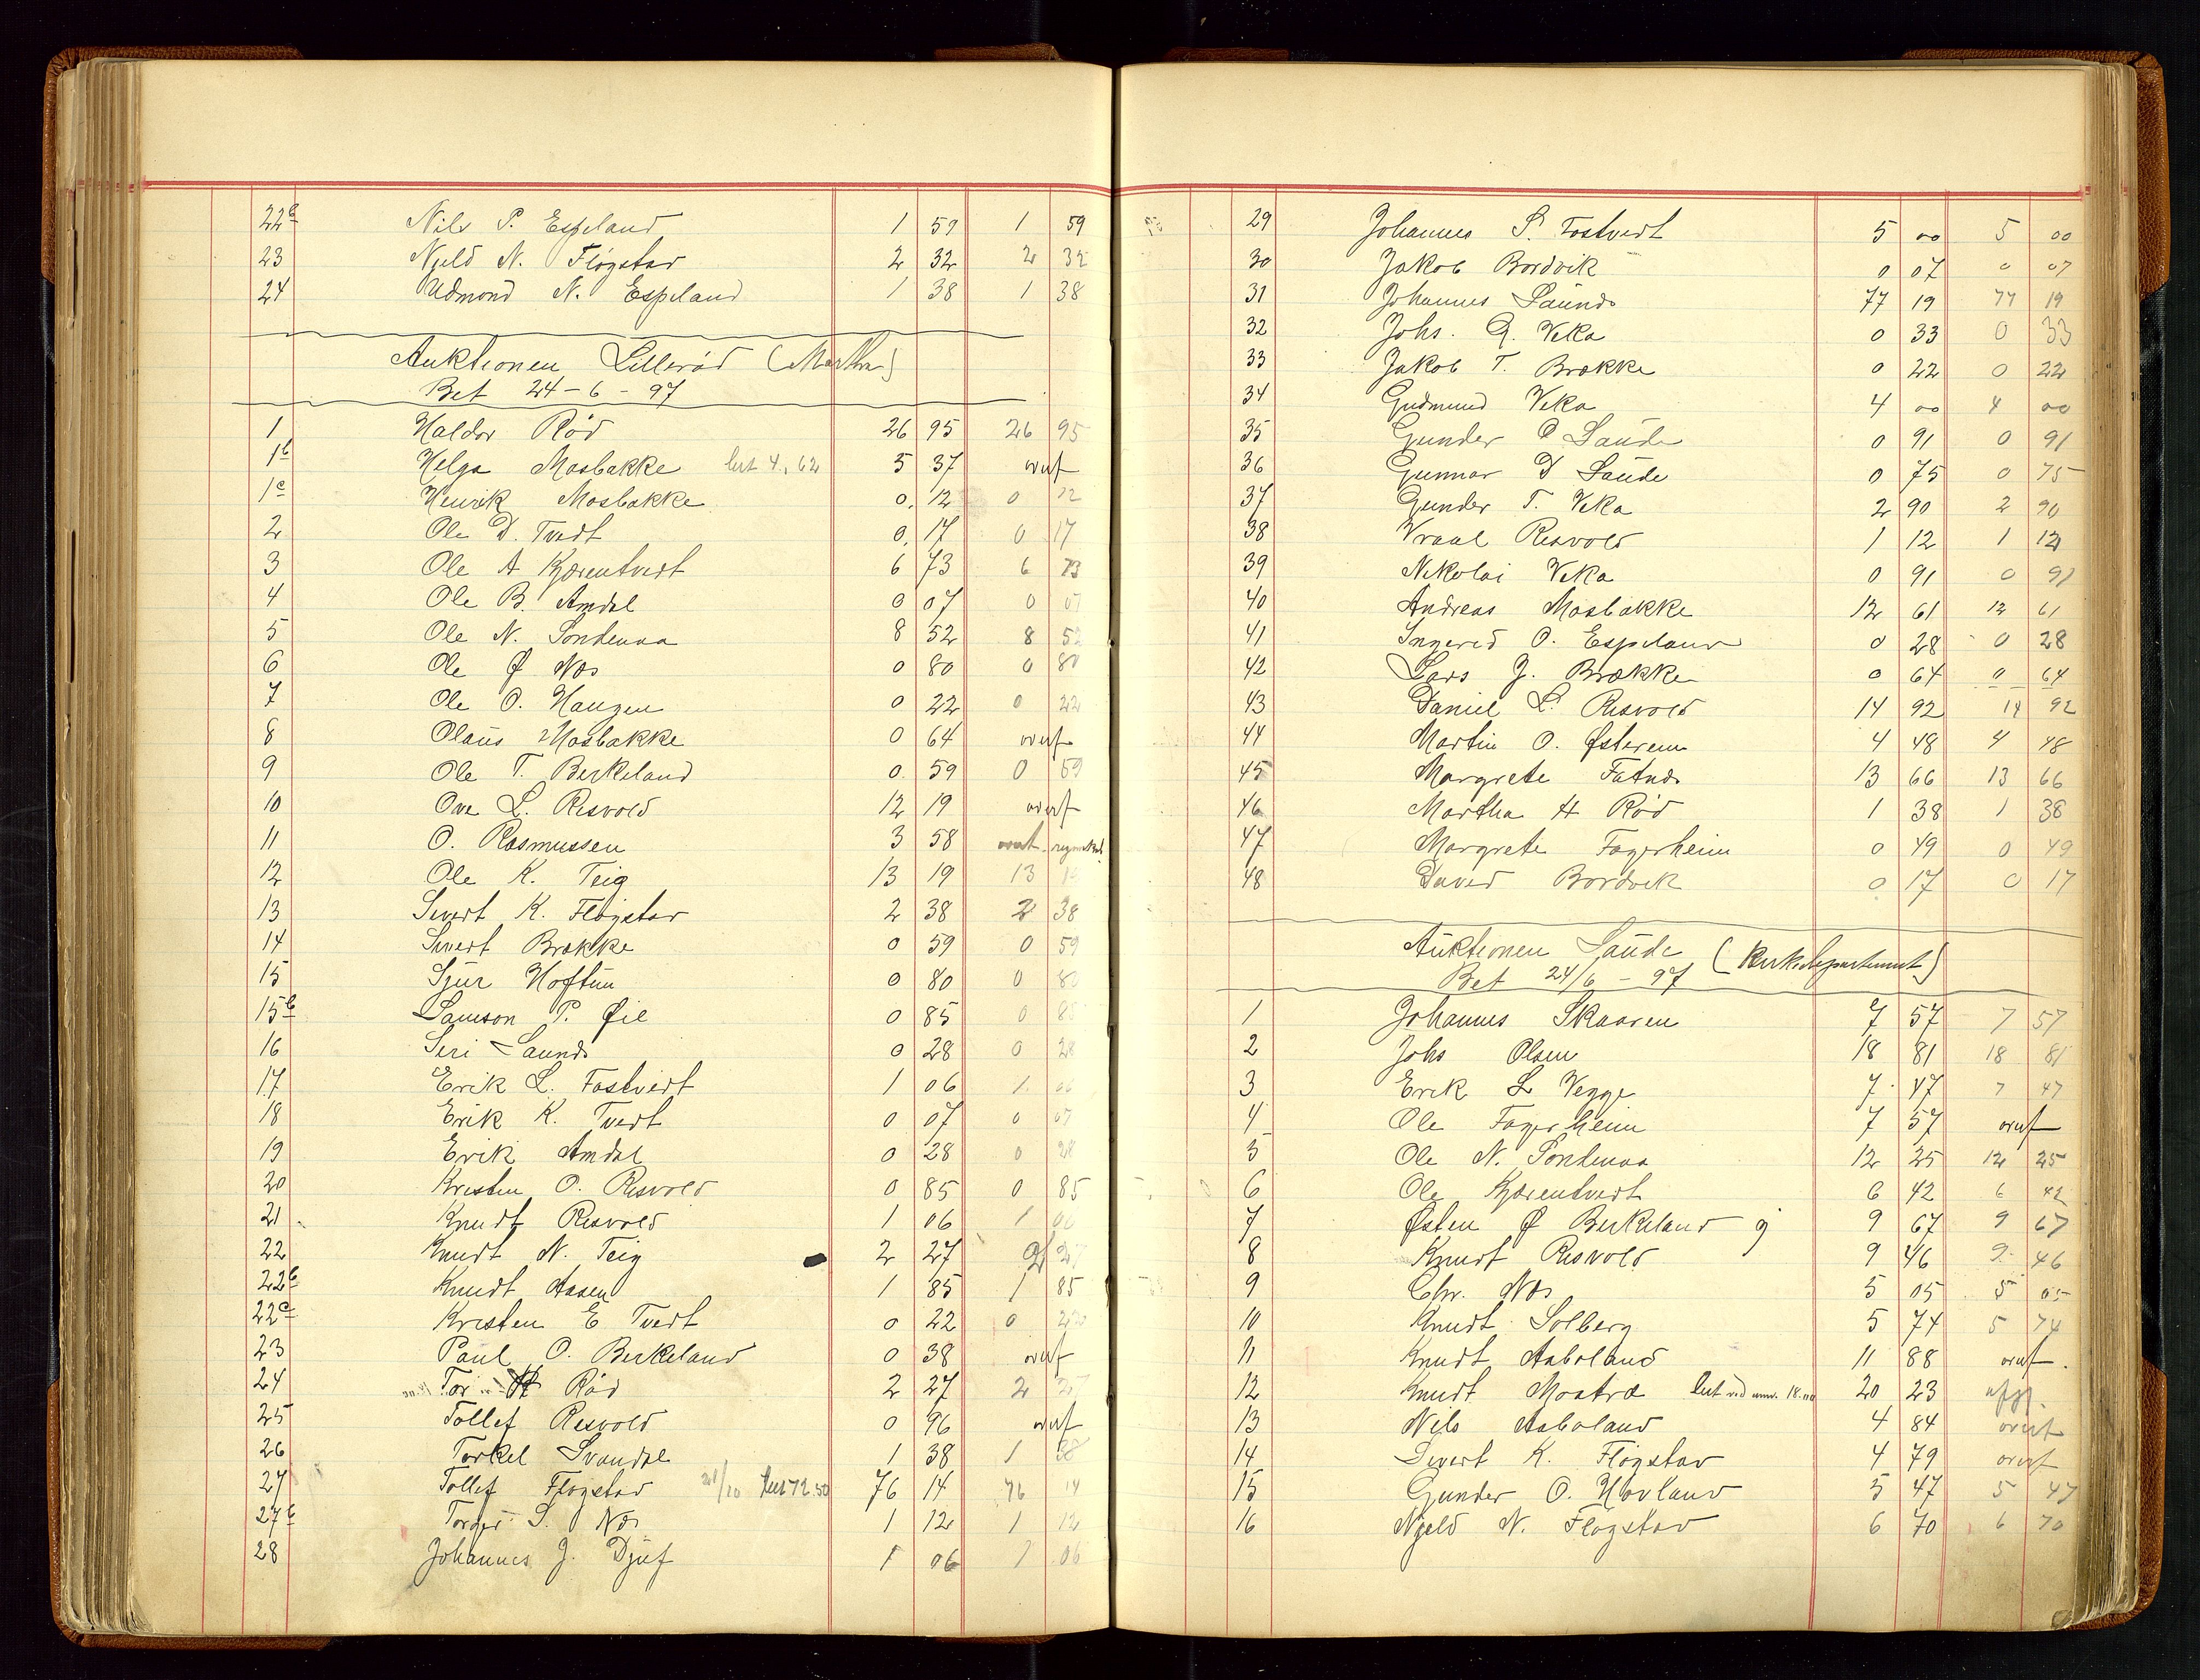 22b Nils P. Espeland 1 59 1 59
23 Njeld N. Fløgstav 2 32 2 32
24 Admond N. Espeland 1 38 1 38
Auktionen Lillerød (Martha)
Bet 24-6-97
1 Haldor Rød 26 95 26 95
1b Helga Mosbakke 4,62 5 37
1c Henrik Mosbakke 0, 12 0 12
2 Ole D. Tvedt 0, 17 0 17
3 Ole A Kjærentvedt 6 73 6 73
4 Ole B. Amdal 0 07 0 07
5 Ole N. Söndenaa 8 52 8 52
6 Ole Ø Næs 0 80 0 80
7 Ole O. Haugen 0 22 0 22
8 Olaus Mosbakke 0 64
9 Ole T. Birkeland 0 59 0 59
10 Ove L. Risvold 12 19
11 O. Rasmussen 3 58
12 Ole K. Teig 13 19 13 19
13 Sivert K. Fløgstav 2 38 2 38
14 Sivert Brække 0 59 0 59
15 Sjur Hoftun 0 80 0 80
15b Samson P. Øie 0 85 0 85
16 Siri Saunde 0 28 0 28
17 Erik L. Fostvedt 1 06 1 06
18 Erik K. Tvedt 0 07 0 07
19 Erik Amdal 0 28 0 28
20 Kristen O. Risvold 0 85 0 85
21 Knudt Risvold 1 06 1 06
22 Knudt N. Teig 2 27 2 27
22b Knudt Aasen 1 85 1 85
22c Kristen E Tvedt 0 22 0 22
23 Paul O. Birkeland 0 38
24 Tor Rød 2 27 2 27
25 Tollef Risvold 0 96
26 Torkel Svandal 1 38 1 38
27 Tollef Fløgstav 21/10 72.50 76 14 76 14
27b Torger S. Næs 1 12 1 12
28 Johannes J. Djuf 1 06 1 06
29 Johannes S. Fostvedt 5 00 5 00
30 Jakob Bordvik 0 07 0 07
31 Johannes Saunde 77 19 77 19
32 Johs. G. Veka 0 33 0 33
33 Jakob T. Brække 0 22 0 22
34 Gudmund Veka 4 00 4 00
35 Gunder Saude 0 91 0 91
36 Gunnar D Saude 0 75 0 75
37 Gunder T. Veka 2 90 2 90
38 Vraal Risvold 1 12 1 12
39 Nikolai Veka 0 91 0 91
40 Andreas Mosbakke 12 61 12 61
41 Ingerid O. Espeland 0 28 0 28
42 Lars J. Brække 0 64 0 64
43 Daniel L. Risvold 14 92 14 92
44 Martin O. Østerem 4 48 4 48
45 Margrete Fatnæs 13 66 13 66
46 Martha H Rød 1 38 1 38
47 Margrete Fagerheim 0 49 0 49
48 David Bordvik 0 17 0 17
Auktionen Saude (Kirkedepartement)
Bet 24/6 - 97
1 Johannes Skaaren 7 57 7 57
2 Johs Olsen 18 81 18 81
3 Erik L Vegge 7 47 7 47
4 Ole Fagerheim 7 57
5 Ole N. Söndenaa 12 25 12 25
6 Ole Kjærentvedt 6 42 6 42
7 Østen Ø Birkeland 9 67 9 67
8 Knudt Risvold 9 46 9 46
9 Chr. Næs 5 05 5 05
10 Knudt Solberg 5 74 5 74
11 Knudt Aaboland 11 88
12 Knudt Mostrø 18.00 20 23
13 Nils Aaboland 4 84
14 Sivert K. Fløgstav 4 79
15 Gunder O. Hovland 5 47 5 47
16 Njeld N. Fløgstav 6 70 6 70